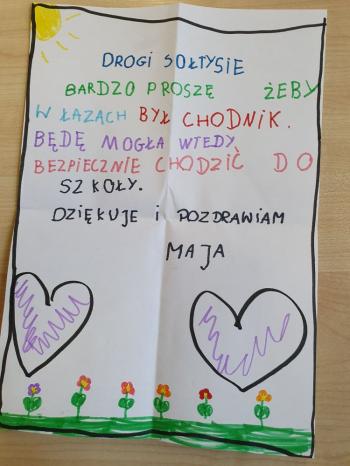 DROGI SOŁTYSIE
BARDZO PROSZĘ ŻEBY
W ŁAZACH BYŁ CHODNIK.
BĘDĘ MOGŁA WTEDY
BEZPIECZNIE CHODZIĆ DO
SZKOŁY.
DZIĘKUJE i POZDRAWIAM
MAJA